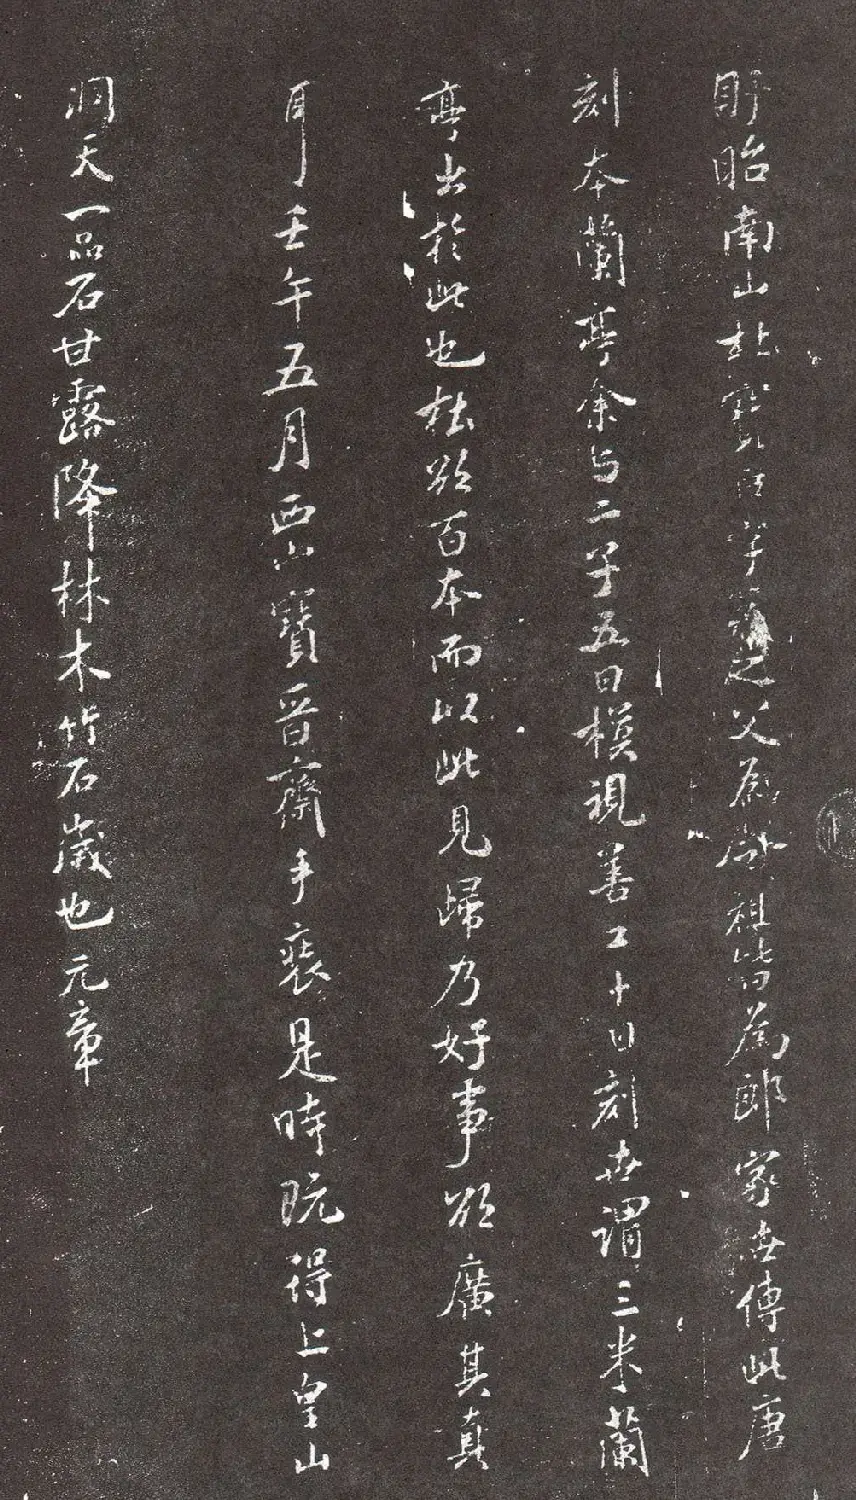 盱眙南山杜寶臣字器之父為郎祖皆為郎家世傳此唐
刻本蘭亭余与二子五日模視善工十日刻世謂三米蘭
亭出於此也杜欲百本而以此見歸乃好事欲廣其真
耳壬午五月西山寶晉齋手裝是時既得上皇山
洞天一品石甘露降林木竹石歲也元章